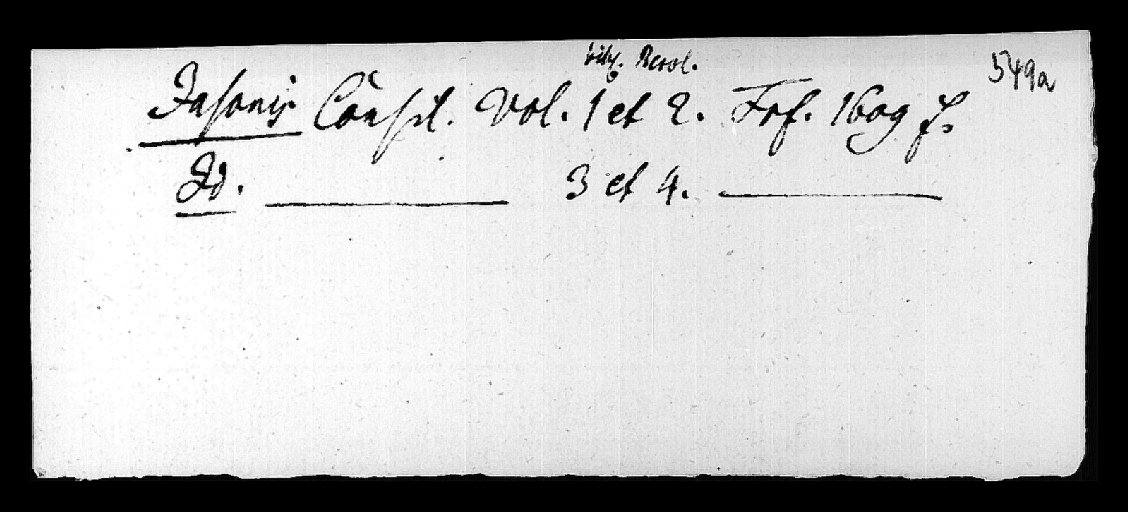 549a
Jasonis Consil. Vol. 1 et 2. Frf. 1609 f.
Id. ——— 3 et 4. ———